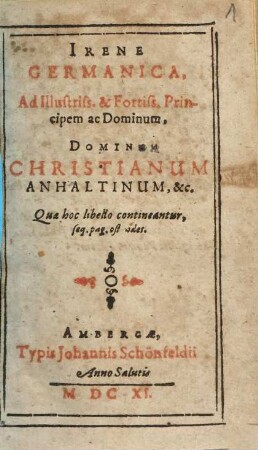 1
IRENE
GERMANICA,
Ad Illustriss. & Fortiss. Prin-
cipem ac Dominum,
DOMINUM
CHRISTIANUM
ANHALTINUM, &c.
Quæ hoc libello contineantur,
seq. pag. est videre.
AMBERGÆ,
Typis Johannis Schönfeldii
Anno Salutis
M DC XI.